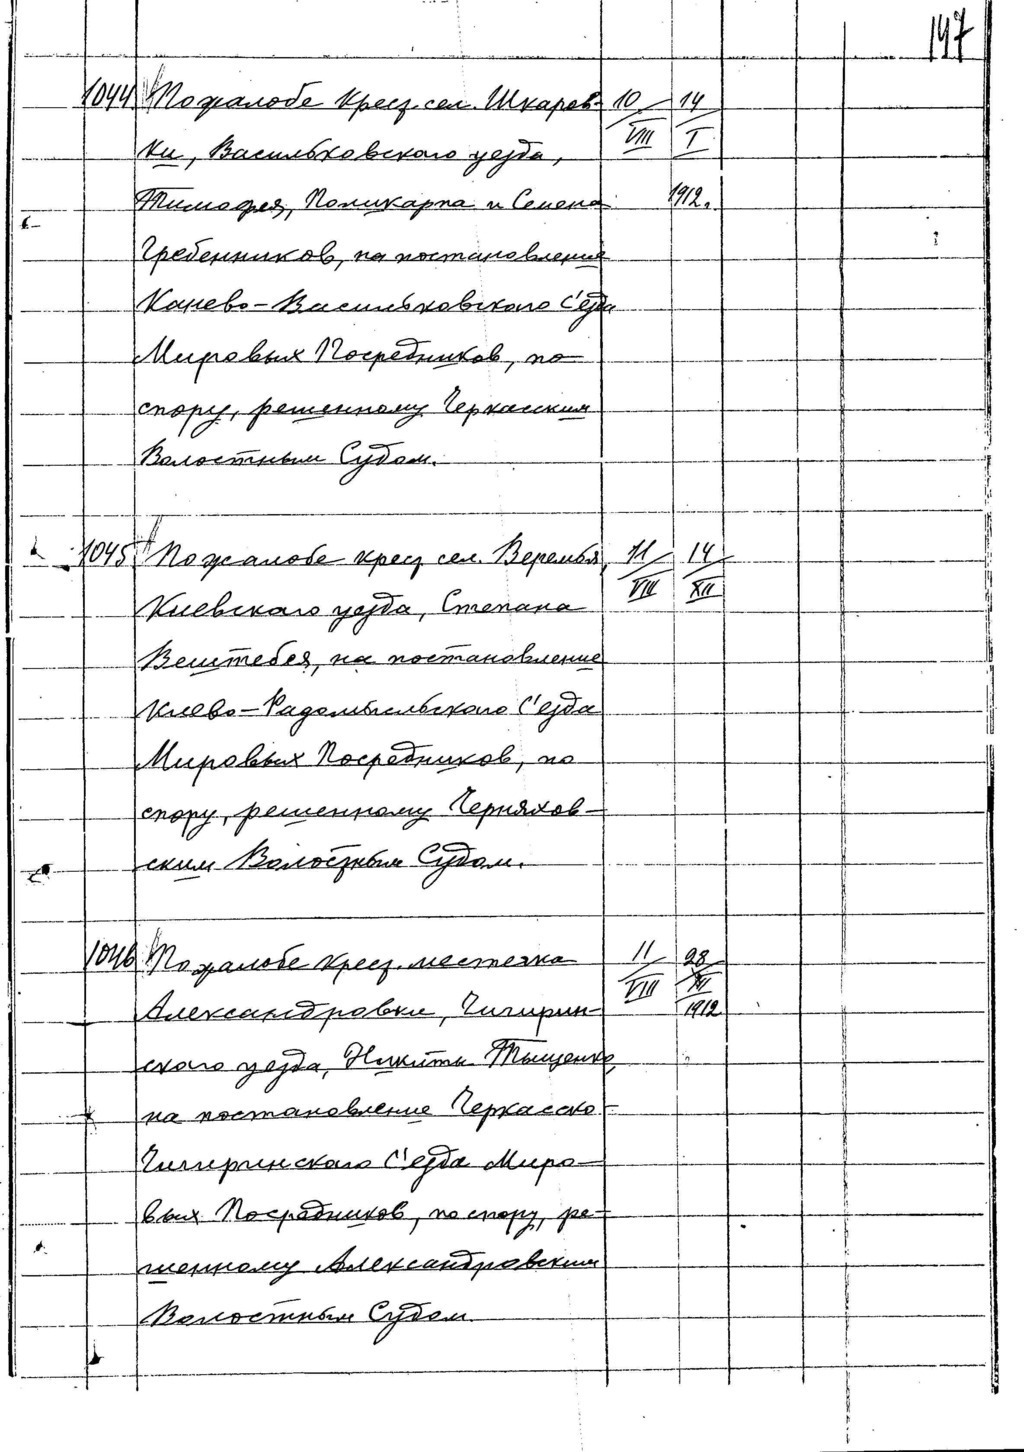 147
1044 По жалобе крест. сел. Шкаров- 10/VIII 14/I
ки, Васильковского уезда,
Тимофея, Поликарпа и Семена 1912.
Гребенников, на постановление
Канево-Васильковского С'езда
Мировых Посредников, по
спору, решенному Черкасским
Волостным Судом.
1045 По жалобе крест. сел. Веремья, 11/VIII 14/XII
Киевского уезда, Степана
Вештебея, на постановление
Киево-Радомысльского С'езда
Мировых Посредников, по
спору, решенному Черняхов-
ским Волостным Судом.
1046 По жалобе крест. местечка 11/VIII 28/XII
Александровки, Чигирин- 1912
ского уезда, Никиты Тыщенко,
на постановление Черкасско-
Чигиринского С'езда Миро-
вых Посредников, по спору, ре-
шенному Александровским
Волостным Судом